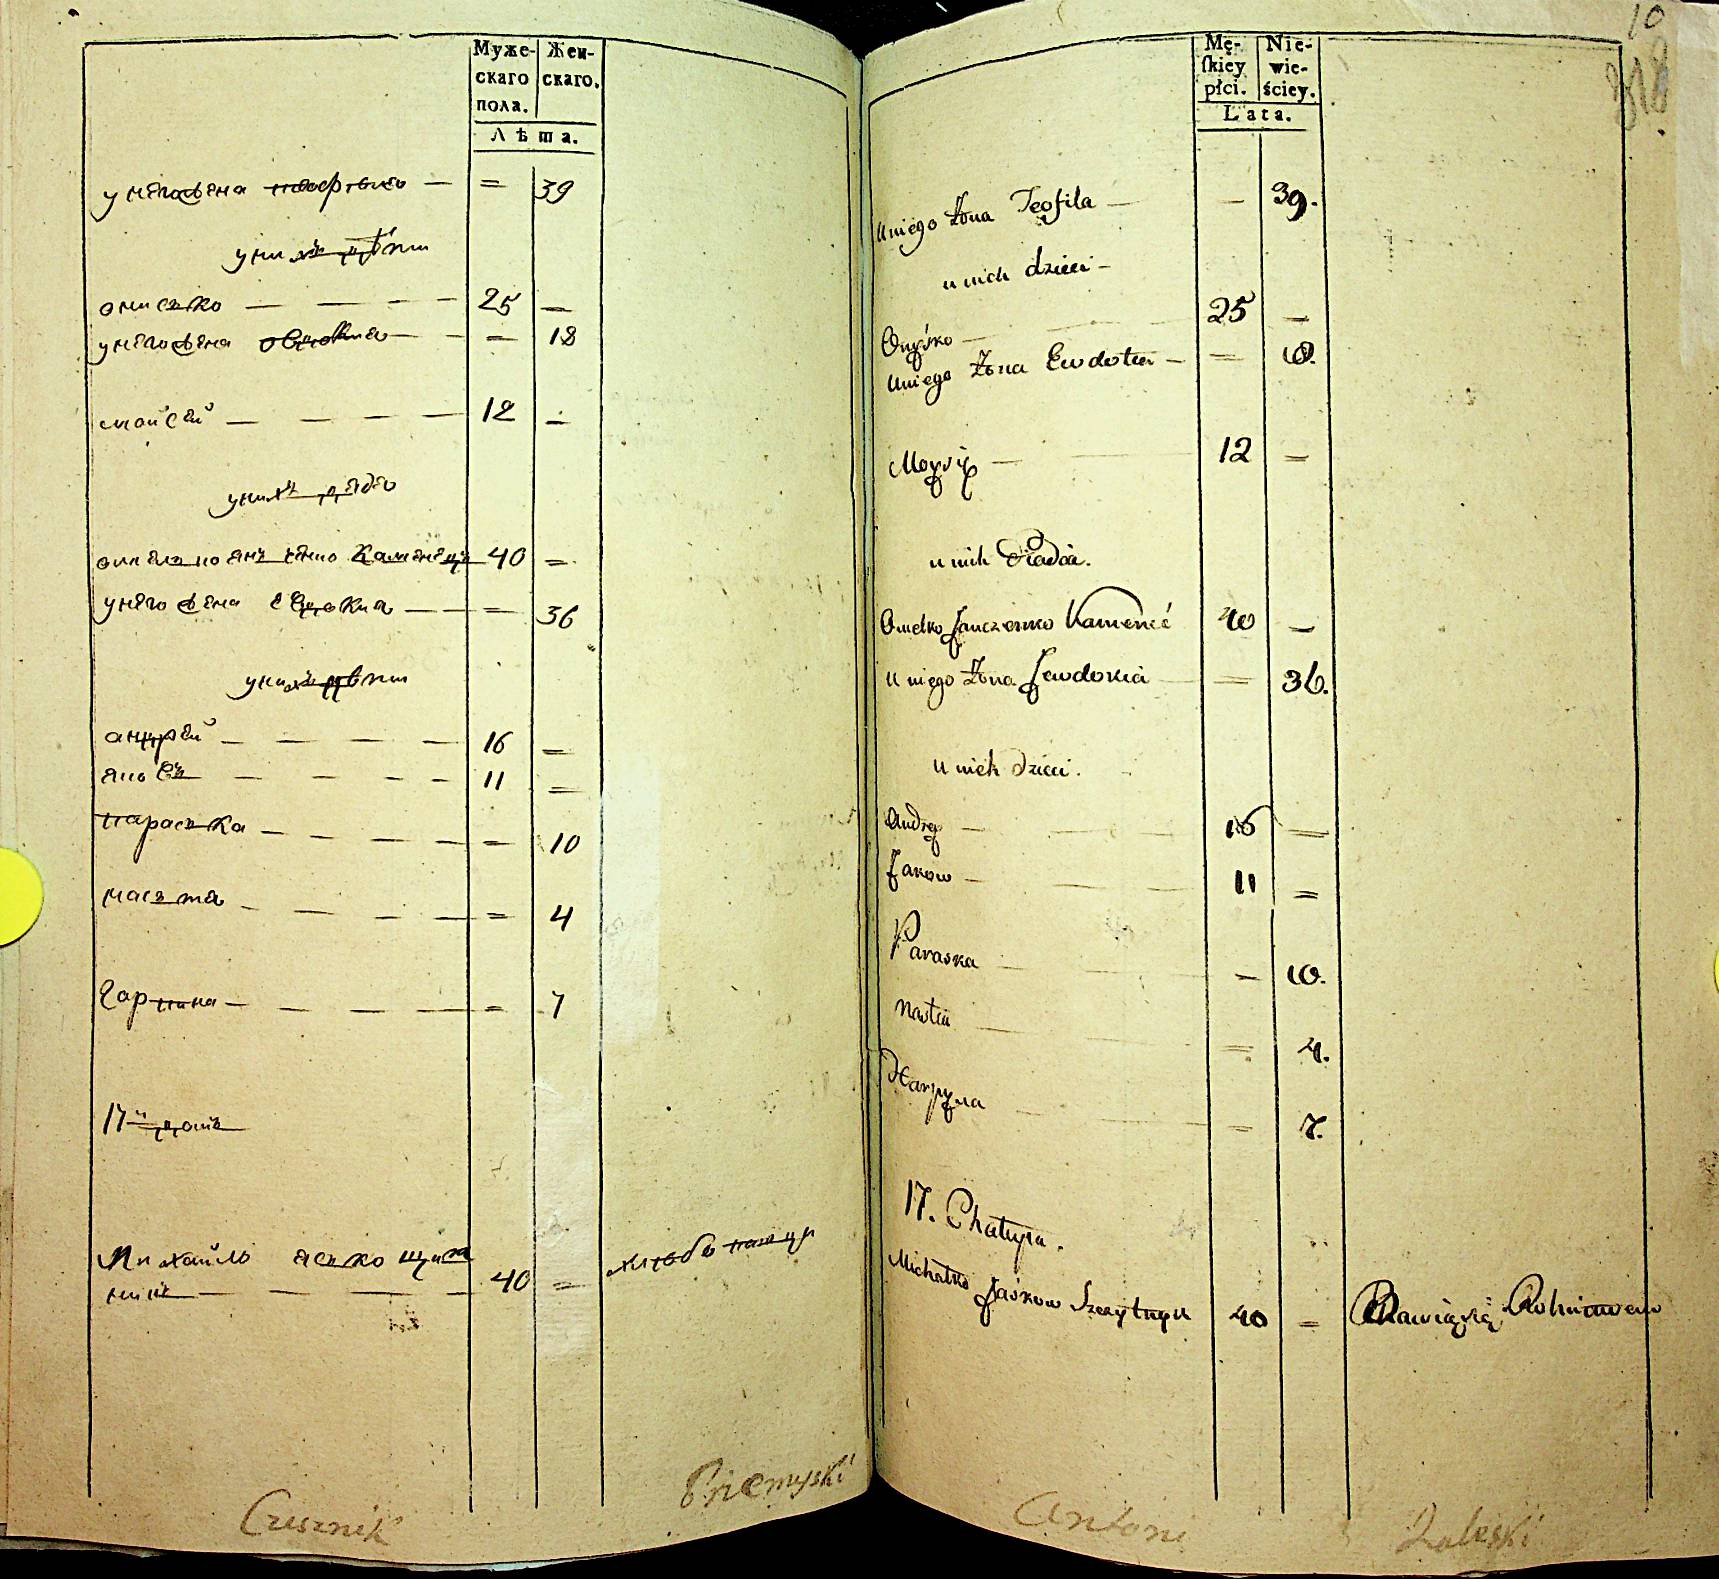 Муже-
скаго
пола.
Жен-
скаго.
Лѣта.
у него жена теофила — = 39
у нихъ дѣти
онисько — — — — 25 —
у него жена овдокиа — — — 18
мойсей — — — — 12 —
у нихъ дядя
омелко янченко Каменецъ 40 =
у него жена евдокиа — — = 36
у нихъ дѣти
андрей — — — — 16 =
яковъ — — — — 11 =
параська — — — — — 10
настя — — — — = 4
гарпина — — — — = 7
17й домъ
Михайло ясько щит
никъ — — — — 40 = хлѣбопашцы
Czesznik Priemyski
10
318
Mę-
ſkiey
płci.
Nie-
wie-
ściey.
Lata.
u niego żona Teofila — — 39.
u nich dzieci —
Onyśko — 25 —
u niego żona Ewdotia — = 18.
Moysiy — 12 =
u nich Diadia.
Omelko Janczenko Kamenec 40 —
u niego żona Jewdokia = 36.
u nich dzieci.
Andrey — 16 =
Jakow — 11 =
Paraska — = 10.
Nastia — = 4.
Harpyna — = 7.
17. Chatupa.
Michałko Jaśkow Szczytnyk 40 = Bawią się Rolnictwem
Antoni Zaleski